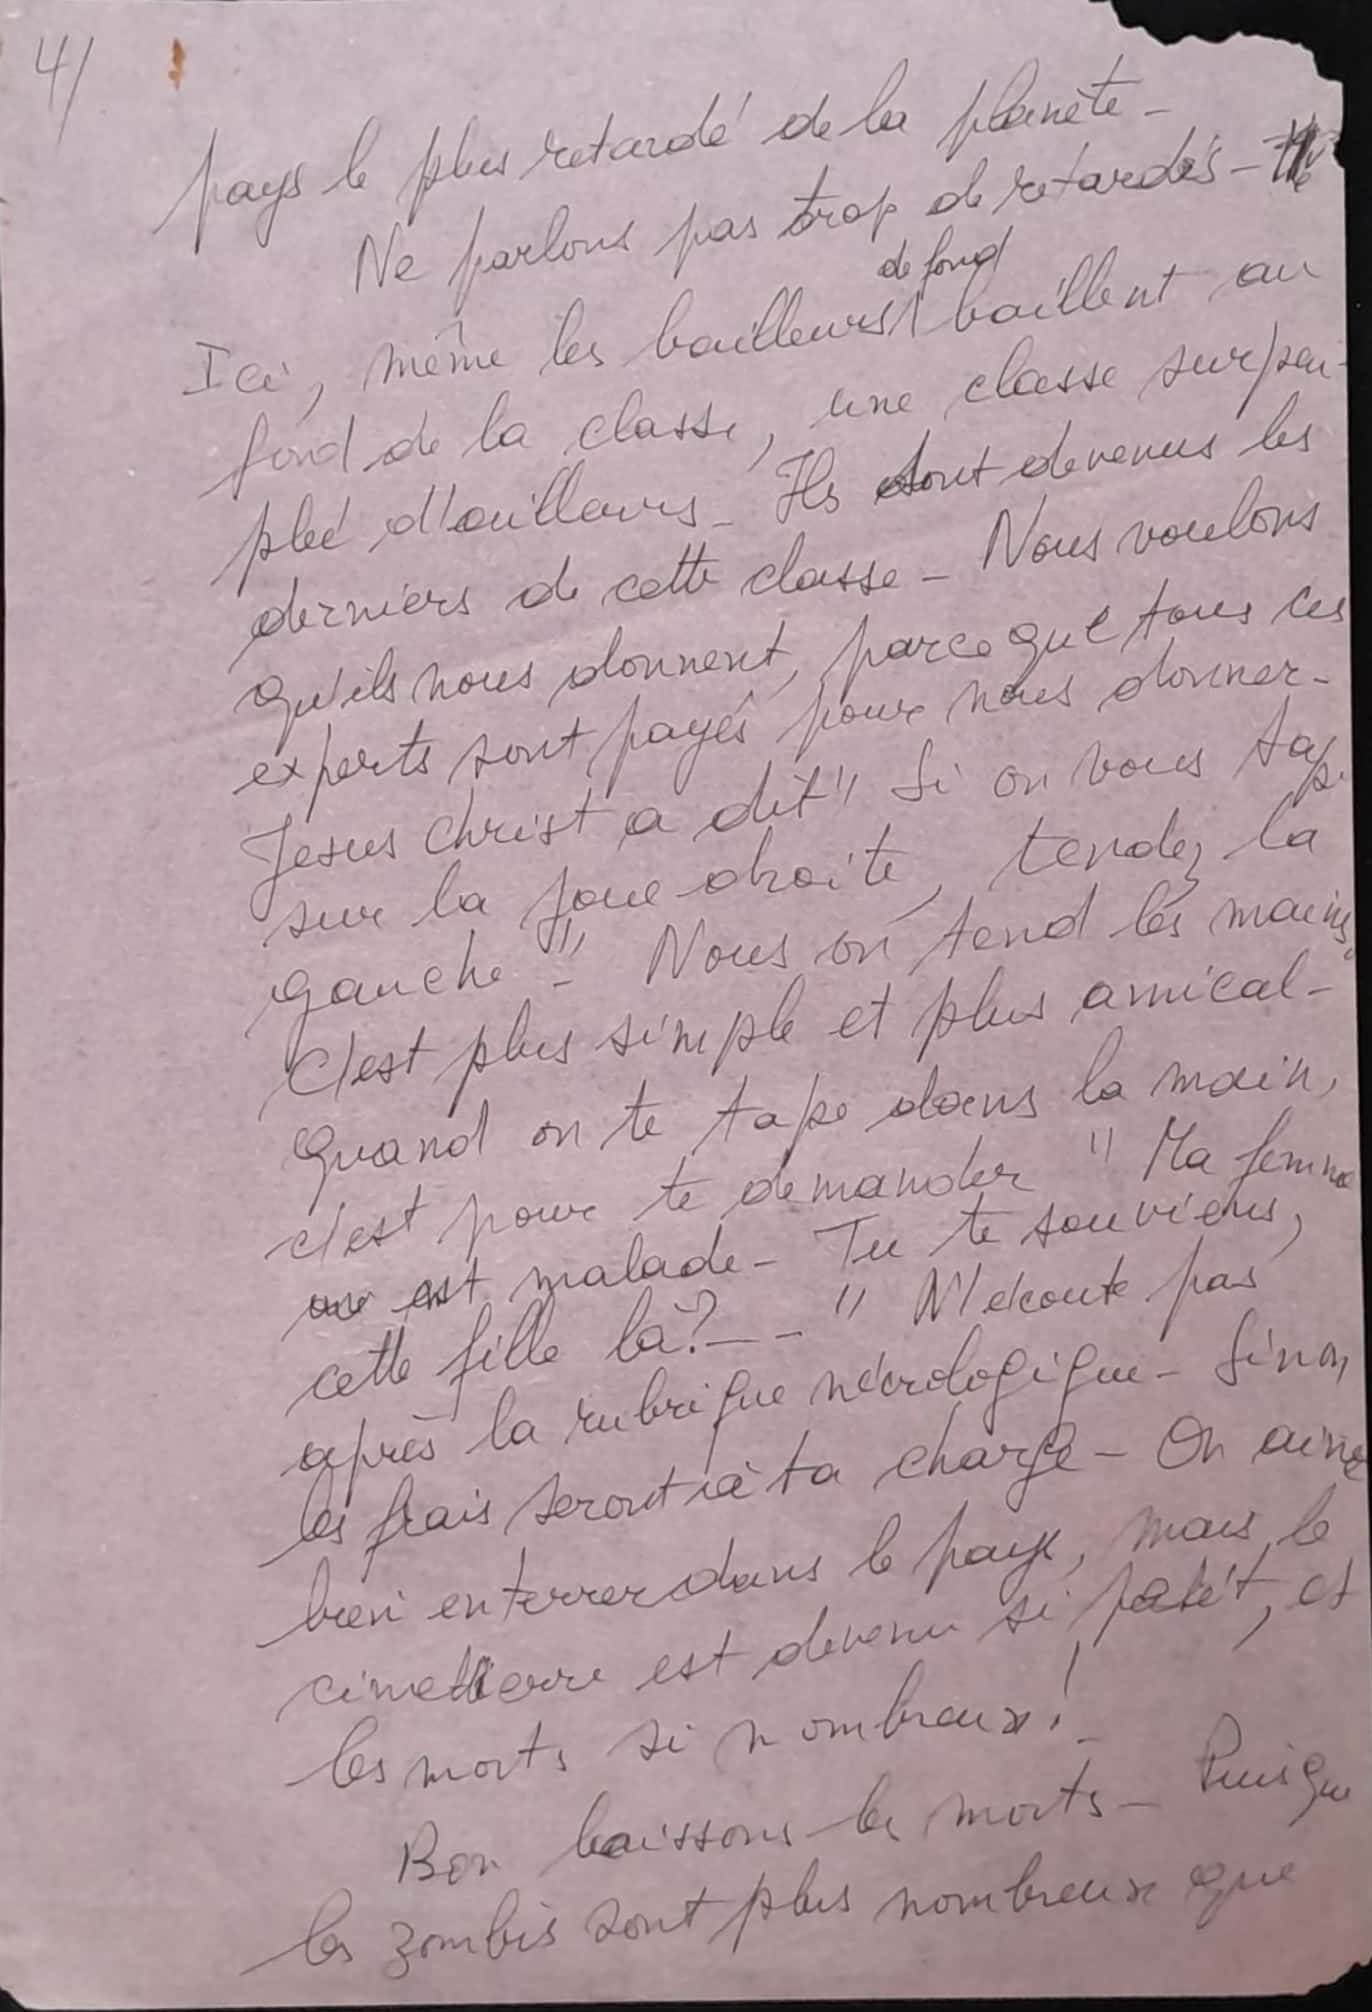 4/
pays le plus retardé de la planète -
Ne parlons pas trop de retardés -
de fond
Ici, même les bailleurs baillent au
fond de la classe, une classe surpeu-
plée d'ailleurs - Ils sont devenus les
derniers de cette classe - Nous voulons
qu'ils nous donnent, parce que tous ces
experts sont payés pour nous donner -
Jesus Christ a dit " Si on vous tape
sur la joue droite, tendez la
gauche " - Nous on tend les mains,
C'est plus simple et plus amical -
Quand on te tape dans la main,
c'est pour te demander " Ma femme
est malade - Tu te souviens,
cette fille là? - - " N'ecoute pas
après la rubrique nécrologique - Sinon
les frais seront à ta charge - On aime
bien enterrer dans le pays, mais le
cimetierre est devenu si petit, et
les morts si nombreux! -
Bon laissons les morts - Puisque
les zombis sont plus nombreux que